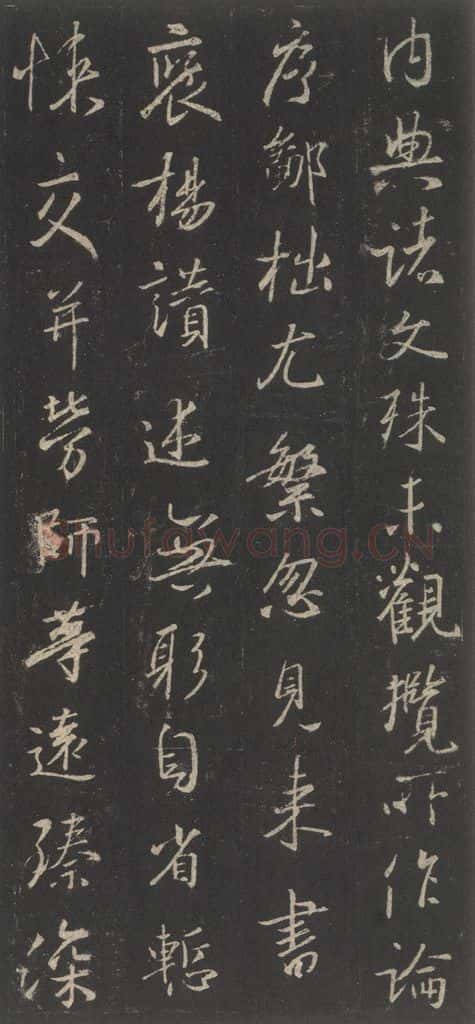 内典諸文殊未觀攬所作論
序鄙拙尤繁忽見来書
褒揚讃述撫躬自省慙
悚交并勞師等遠臻深
Shufawang.CN